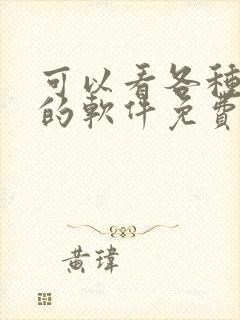 可以看各種
的軟件免費
黃瑋